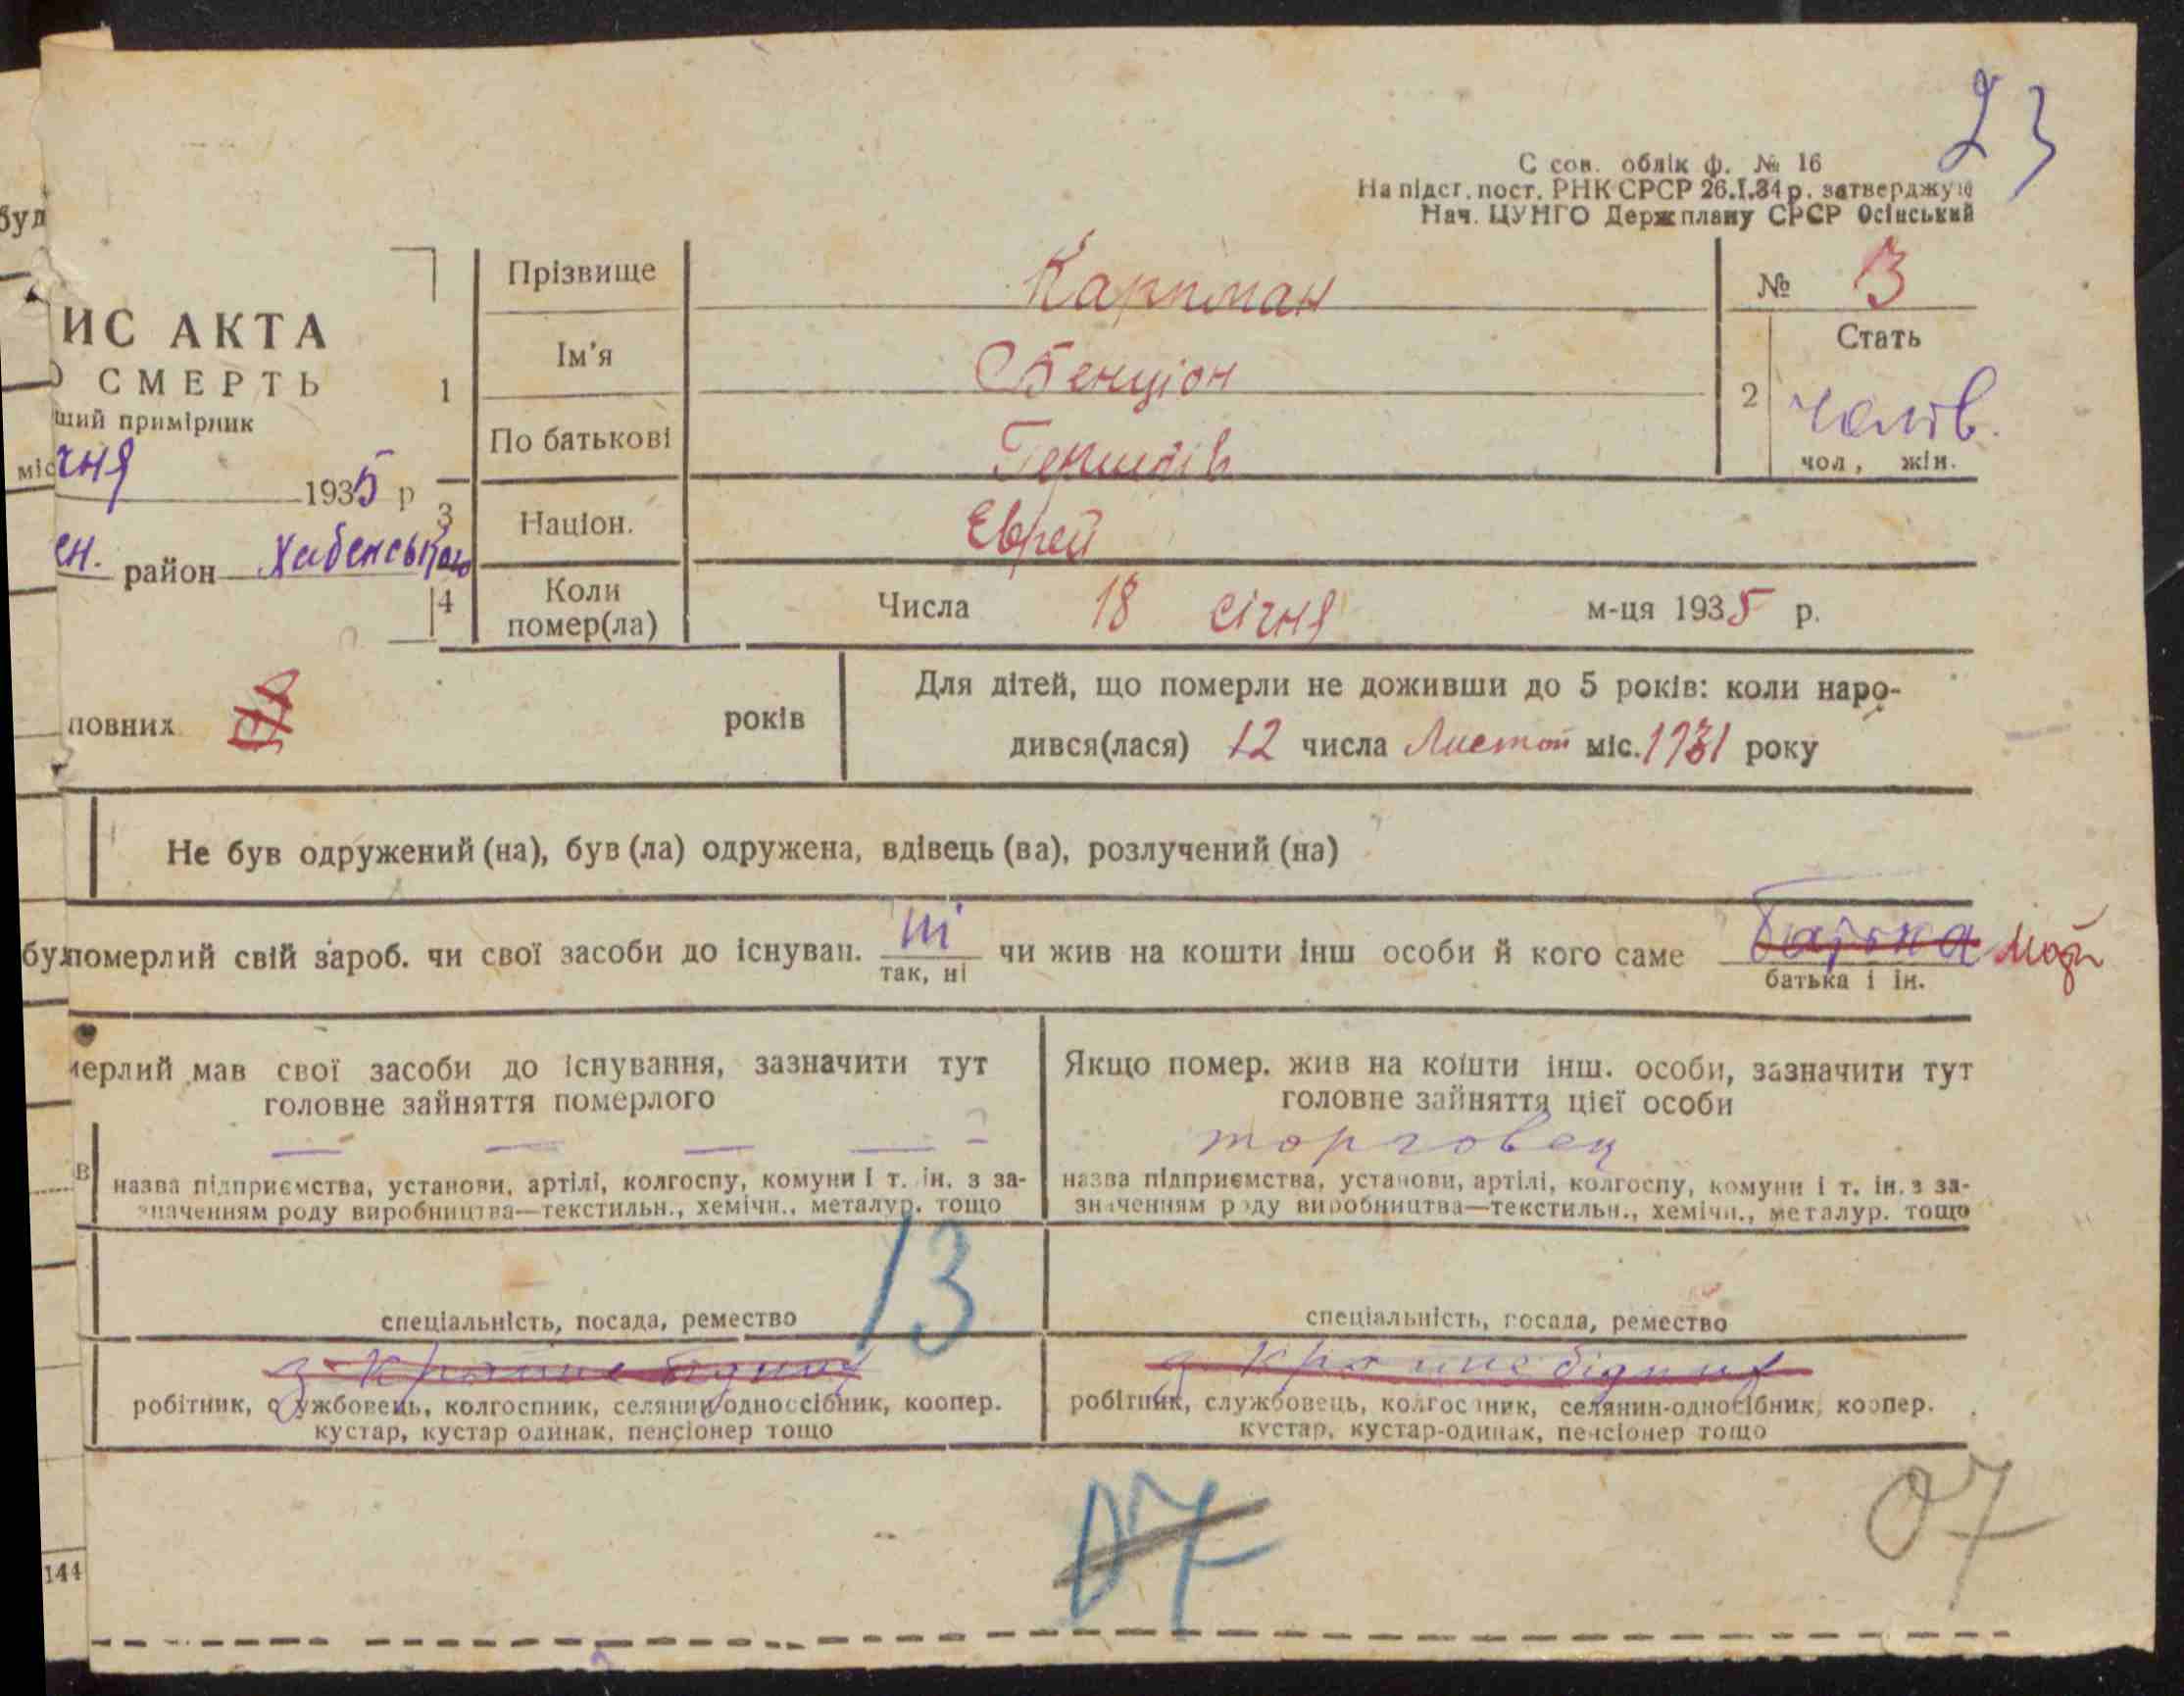 23
С сов. облік ф. № 16
На підст. пост. РНК СРСР 26.I.34 р. затверджую
Нач. ЦУНГО Держплану СРСР Осінський
буд
ИС АКТА
О СМЕРТЬ
ший примірник
міс чня 1935 р
ен. район Хабенського
1 Прізвище Карпман
№ 13
Ім'я Бенціон
2 Стать
чолов.
чол, жін.
По батькові Гершків
3 Націон. Єврей
4 Коли помер(ла) Числа 18 січня м-ця 1935 р.
повних років
Для дітей, що померли не доживши до 5 років: коли наро-
дився(лася) 12 числа Листоп міс. 1931 року
Не був одружений (на), був (ла) одружена, вдівець (ва), розлучений (на)
бул померлий свій зароб. чи свої засоби до існуван. ні чи жив на кошти інш особи й кого саме батька
так, ні
батька і ін.
мерлий мав свої засоби до існування, зазначити тут
головне зайняття померлого
— — — —
в назва підприємства, установи, артілі, колгоспу, комуни і т. ін. з за-
значенням роду виробництва—текстильн., хемічн., металур. тощо
Якщо помер. жив на кошти інш. особи, зазначити тут
головне зайняття цієї особи
торговец
назва підприємства, установи, артілі, колгоспу, комуни і т. ін. з за-
значенням роду виробництва—текстильн., хемічн., металур. тощо
13
спеціальність, посада, ремество
спеціальність, посада, ремество
робітник, службовець, колгоспник, селянин-одноосібник, коопер.
кустар, кустар одинак, пенсіонер тощо
робітник, службовець, колгоспник, селянин-одноосібник, коопер.
кустар, кустар-одинак, пенсіонер тощо
07
07
144